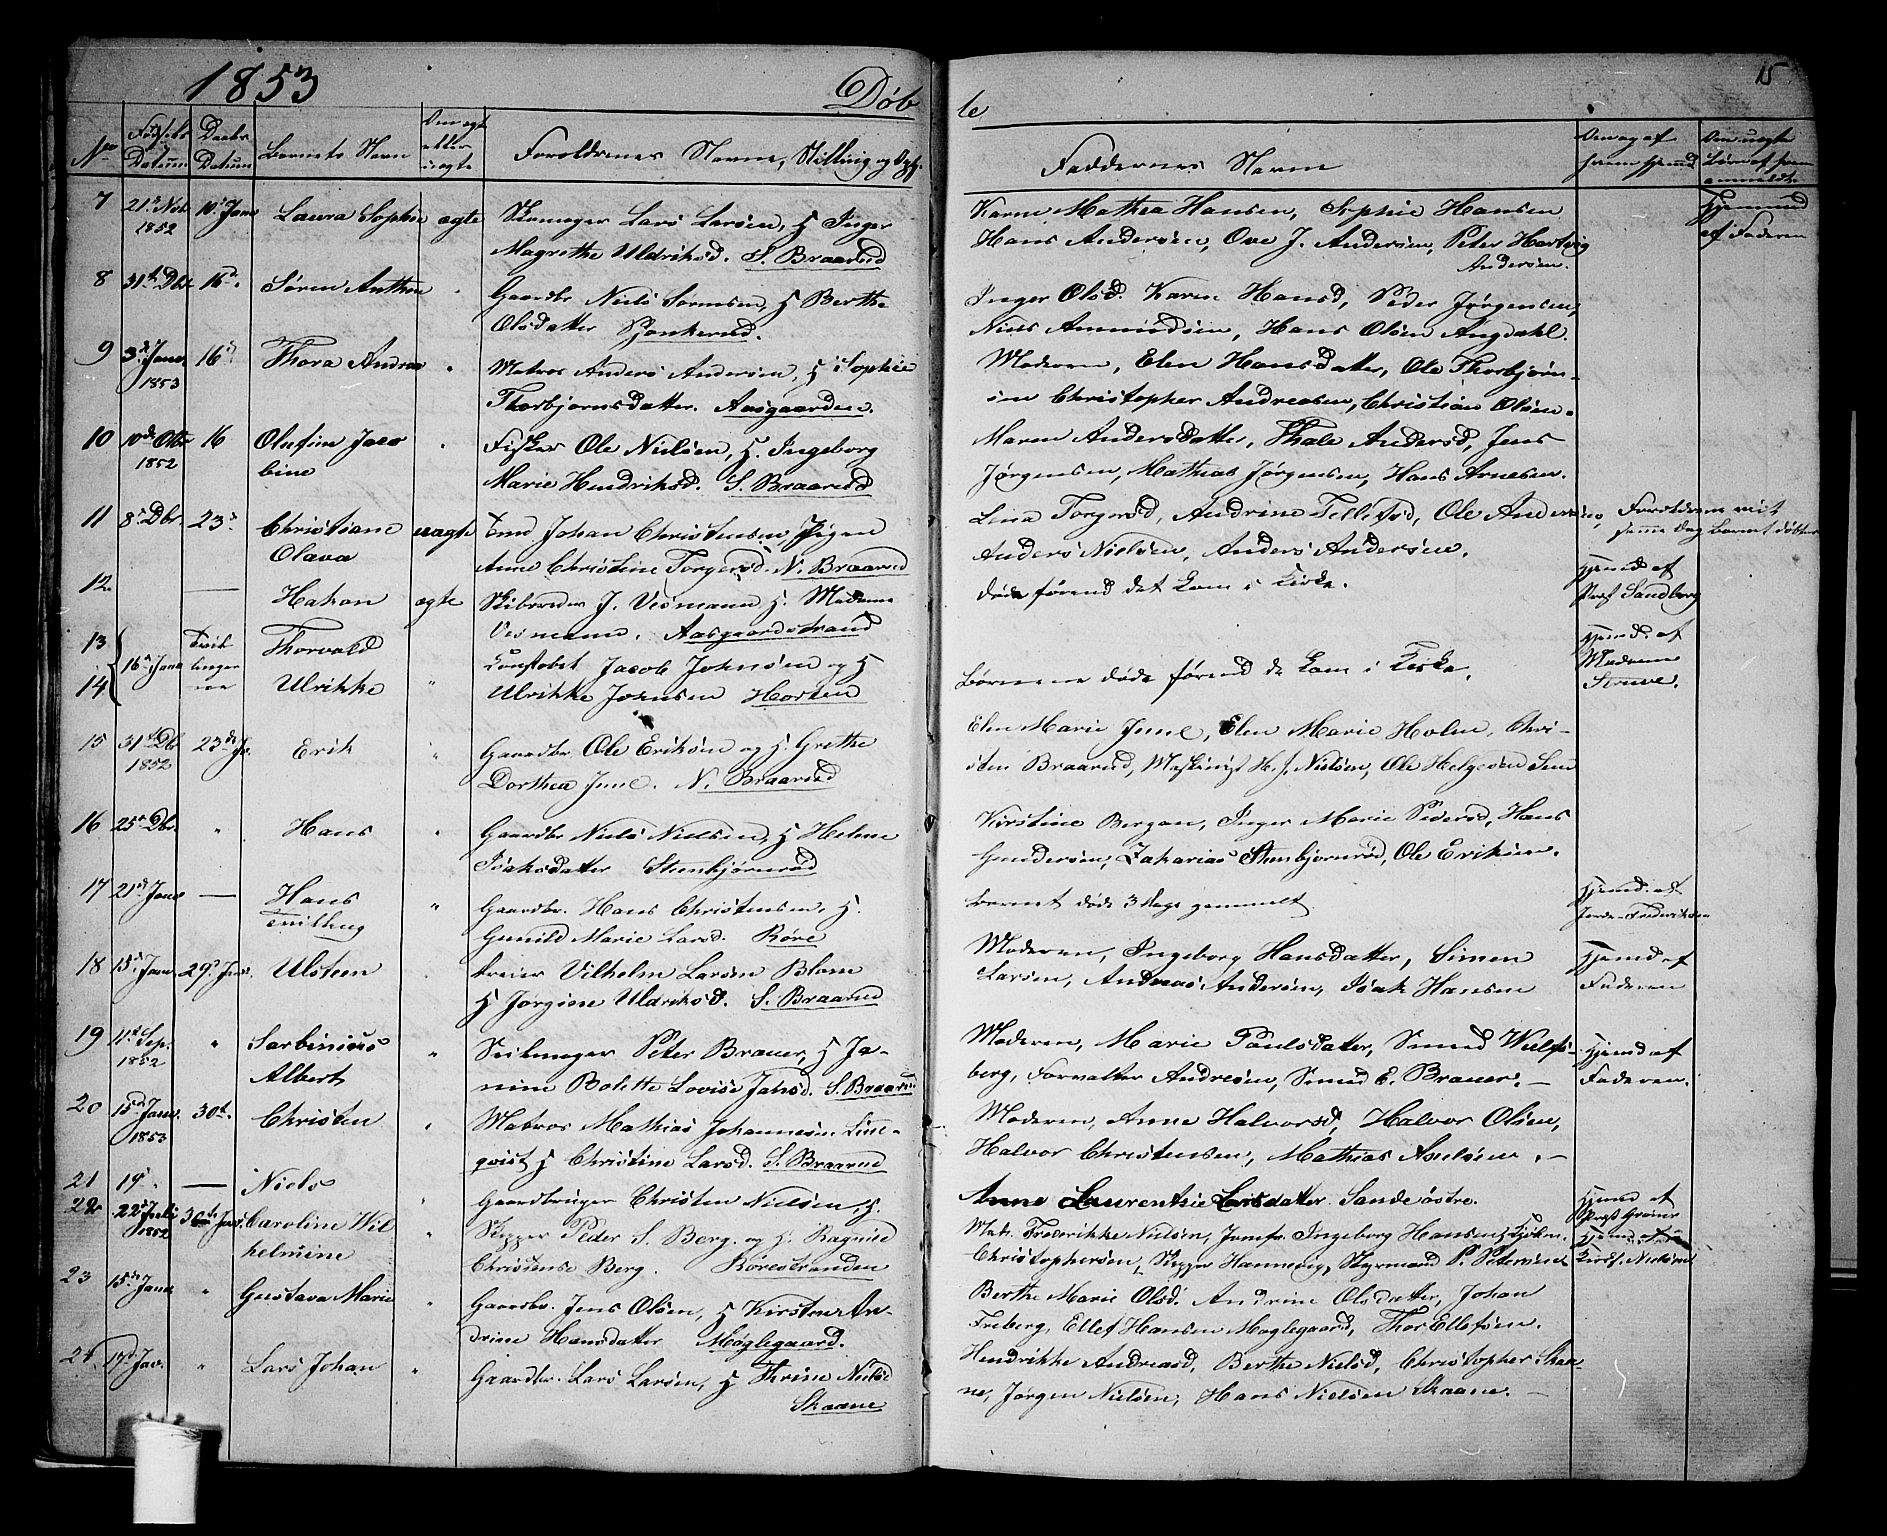 1853
Døb
te
15
No
Fødsels Datum
Daabs Datum
Barnets Navn
Om ægte eller uægte
Forældrenes Navne, Stilling og
Faddernes Navn
7 21. Nov. 1852 10. Jan Laura Sophie ægte Lars Larsen, H. Inger
Magrethe Uldriksd. S. Braarud
Karen Mathea Hansen, Sophie Hansen
Hans Andersen, Ove J. Andersen, Peter Hartvig
Andersen.
Hjemmed
af Faderen
8 31. Dbr. 16. Søren Anthon " Gaardbr Niels Sørensen, H Berthe
Olsdatter
Inger Olsd. Karen Hansd, Peder Jørgensen,
Niels Amundsen, Hans Olsen Augdahl.
9 3. Janu. 1853 16 Thora Andrea " Matros Anders Andersen, H Sophie
Thorbjørnsdatter. Aasgaarden.
Moderen, Elen Hansdatter, Ole Thorbjørn-
sen Christopher Andreasen, Christian Olsen.
10 10de Otbr 1852 16 Olufine Jaco " Fisker Ole Nielsen, H. Ingeborg
bine Marie Hendriksd. S. Braarud
Maren Andersdatter, Thale Andersd, Jens
Jørgensen, Mathias Jørgensen, Hans Arnesen.
11 8. Dbr. 23 Christiane uægte Emd Johan Christensen, Pigen
Olava Anne Christine Torgersd. N. Braarud
Lina Torgersd, Andrine Tellefsd, Ole Andersen,
Anders Nielsen, Anders Andersen.
Forældrene viet
samme Dag barnet døbtes
12 — Hakon ægte Skibsreder J. Vesmann H. Madame
Vesmann. Aasgaardstrand
døde førend det kom i Kirke.
Hjemd af
Præst Sandberg
13 Thorvald
14 16. Jan Tvil-
lingerne Ulrikke " Konstabel Jacob Johnsen og H
Ulrikke Johnsen Horten
Børnene døde førend de kom i Kirke.
Hjemd. af
Madame
Struve.
15 31 Dbr 1852 23de Jr. Erik " Gaardbr Ole Eriksen og H. Grethe
Dorthea Juul. N. Braarud
Elen Marie Juul, Elen Marie Holm, Chri-
sten Braarud, H. J. Nielsen, Ole Helgesen
16 25. Dbr. " Hans " Gaardbr Niels Nielsen, H Helene
Isaksdatter Steenbjørnrød
Kirstine Bergan, Inger Marie Pedersd, Hans
Gundersen, Zakarias Steenbjørnrød, Ole Eriksen.
17 21. Janr — Hans
Tvilling " Gaardbr. Hans Christensen, H.
Gunild Marie Larsd. Røre
barnet døde 3 Dage gammelt
Hjemd. af
Frederiksen
18 15. Jan. 29. Jan. Ulsteen " Vilhelm Larsen Blom
H Jørgine Uldriksd. S. Braarud
Moderen, Ingeborg Hansdatter, Simen
Larsen, Andreas Andersen, Isak Hansen
Hjemd af
Faderen
19 11. Sep. 1852 " Sarbinius
Albert " Seilmager Peter Brauer, H Ja-
nine Bolette Lovise Jahsd. S. Braarud
Moderen, Marie Paulsdatter, Smed Wulfs-
berg, Forvalter Andresen, Smed E. Brauer. —
Hjemd af
Faderen.
20 15. Janu. 1853 30. Christen " Matros Mathias Johannesen Lind-
qvist, H Christine Larsd. S. Braarud
Moderen, Anne Halvorsd, Halvor Olsen,
Halvor Christensen, Mathias Axelsen. —
21 19 " — Niels " Gaardbruger Christen Nielsen, H.
Anne Laurentzie Larsdatter. Sande østre.
Hjemd af
Præst
22 22. Juli 1852 30te Jan. Caroline Wil
helmine " Skipper Peder S. Berg. og H. Ragnild
Christense Berg. Rørestranden
Mad. Frederikke Nielsen, Jomfr. Ingeborg Hansen,
Christophersen, Skipper Hannevig, Styrmand P. Petersen
Hjemd af
Nielsen
23 15. Janr " Gustava Marie " Gaardbr. Jens Olsen, H Kirsten An-
drine Hansdatter Møglegaard.
Berthe Marie Olsd. Andrine Olsdatter, Johan
Freberg, Ellef Hansen Møglegaard, Thor Ellefsen.
24 17. Jan. " Lars Johan " Gaardbr. Lars Larsen, H Thrine Nielsd
Skaane
Hendrikke Andreasd, Berthe Nielsd, Christopher Skaa-
ne, Jørgen Nielsen, Hans Nielsen Skaane. —